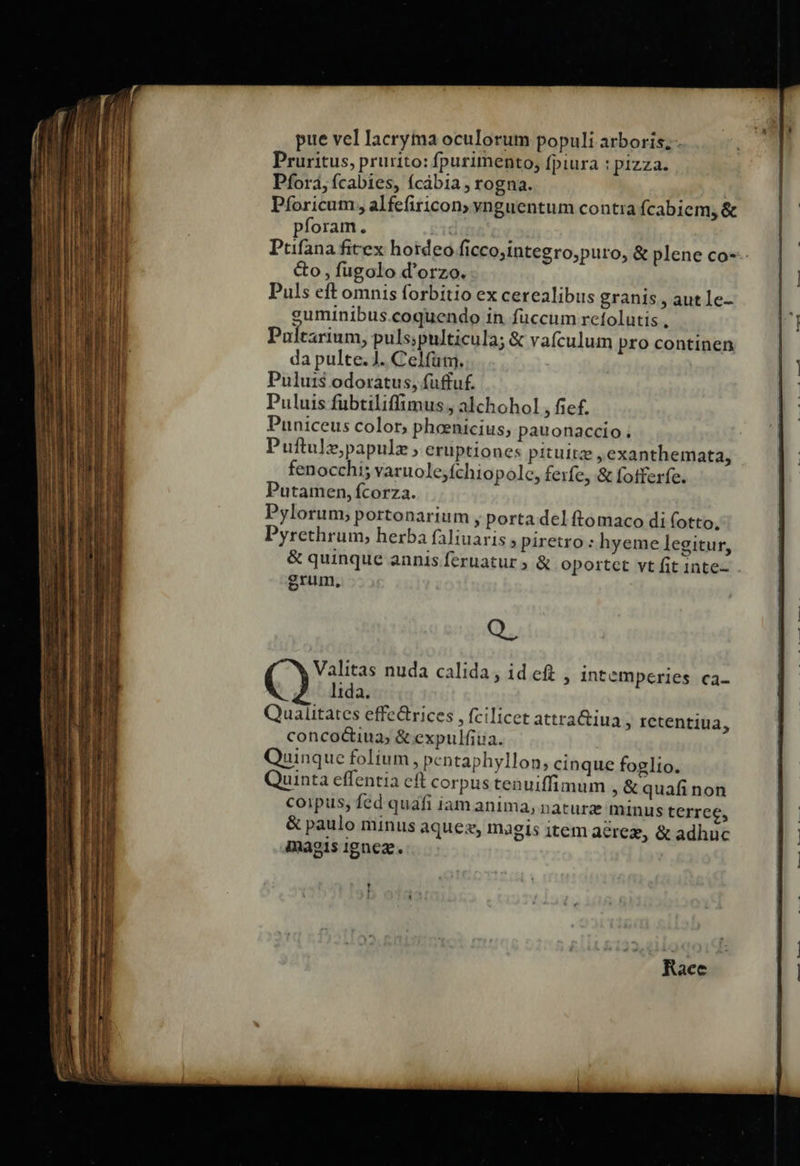 pue vel lacryma oculorum populi arboris.
Pruritus, prurito: ſpurimento, ſpiura: pizza.
Pſora, ſcabies, ſcabia, rogna.
Pſoricum, alfeſiricon, vnguentum contra ſcabiem, &
pſoram.
Ptiſana fit ex hordeo ſicco, integro, puro, & plene co-
cto, ſugolo d'orzo.
Puls eſt omnis ſorbitio ex cerealibus granis, aut le-
guminibus coquendo in ſuccum reſolutis.
Pultarium, puls, pulticula; & vaſculum pro continen
da pulte. l. Celſum.
Puluis odoratus, ſuffuf.
Puluis ſubtiliſſimus, alchohol, ſief.
Puniceus color, phœnicius, pauonaccio.
Puſtulæ, papulæ, eruptiones pituitæ, exanthemata,
fenocchi; varuole, ſchiopole, ferſe, & ſofferſe.
Putamen, ſcorza.
Pylorum, portonarium, porta del ſtomaco di ſotto.
Pyrethrum, herba ſaliuaris, piretro: hyeme legitur,
& quinque annis ſeruatur, & oportet vt ſit inte-
grum.
Q
QValitas nuda calida, id eſt, intemperies ca-
lida.
Qualitates effectrices, ſcilicet attractiua, retentiua,
concoctiua, & expulſiua.
Quinque folium, pentaphyllon, cinque foglio.
Quinta eſſentia eſt corpus tenuiſſimum, & quaſi non
corpus, ſed quaſi iam anima, naturæ minus terreę,
& paulo minus aqueæ, magis item aëreæ, & adhuc
magis igneæ.
Race